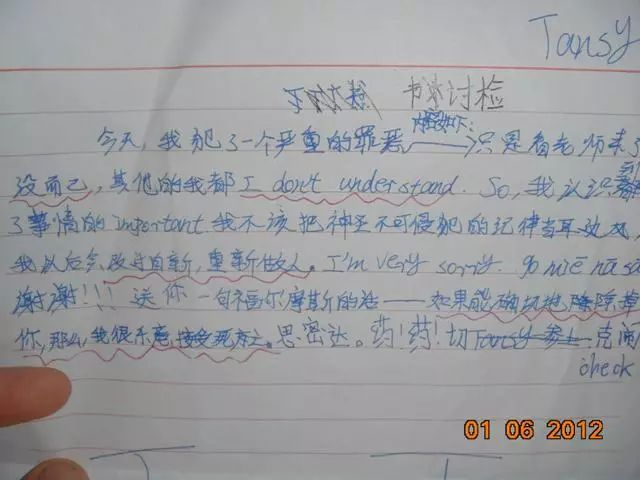 Tansy
书讨检
今天,我犯了一个严重的罪恶——只是看老师来了
没而已,其他的我都 I don't understand. So,我认识到
了事情的 important.我不该把神圣不可侵犯的纪律当耳边风,
我以后会改过自新,重新做人。I'm very sorry. go miē nā sā
谢谢!!!送你一句福尔摩斯的话——如果能确切地除掉
你,那么我很乐意接受现在。思密达。药!药!切Tansy参上 克闹
check
01 06 2012